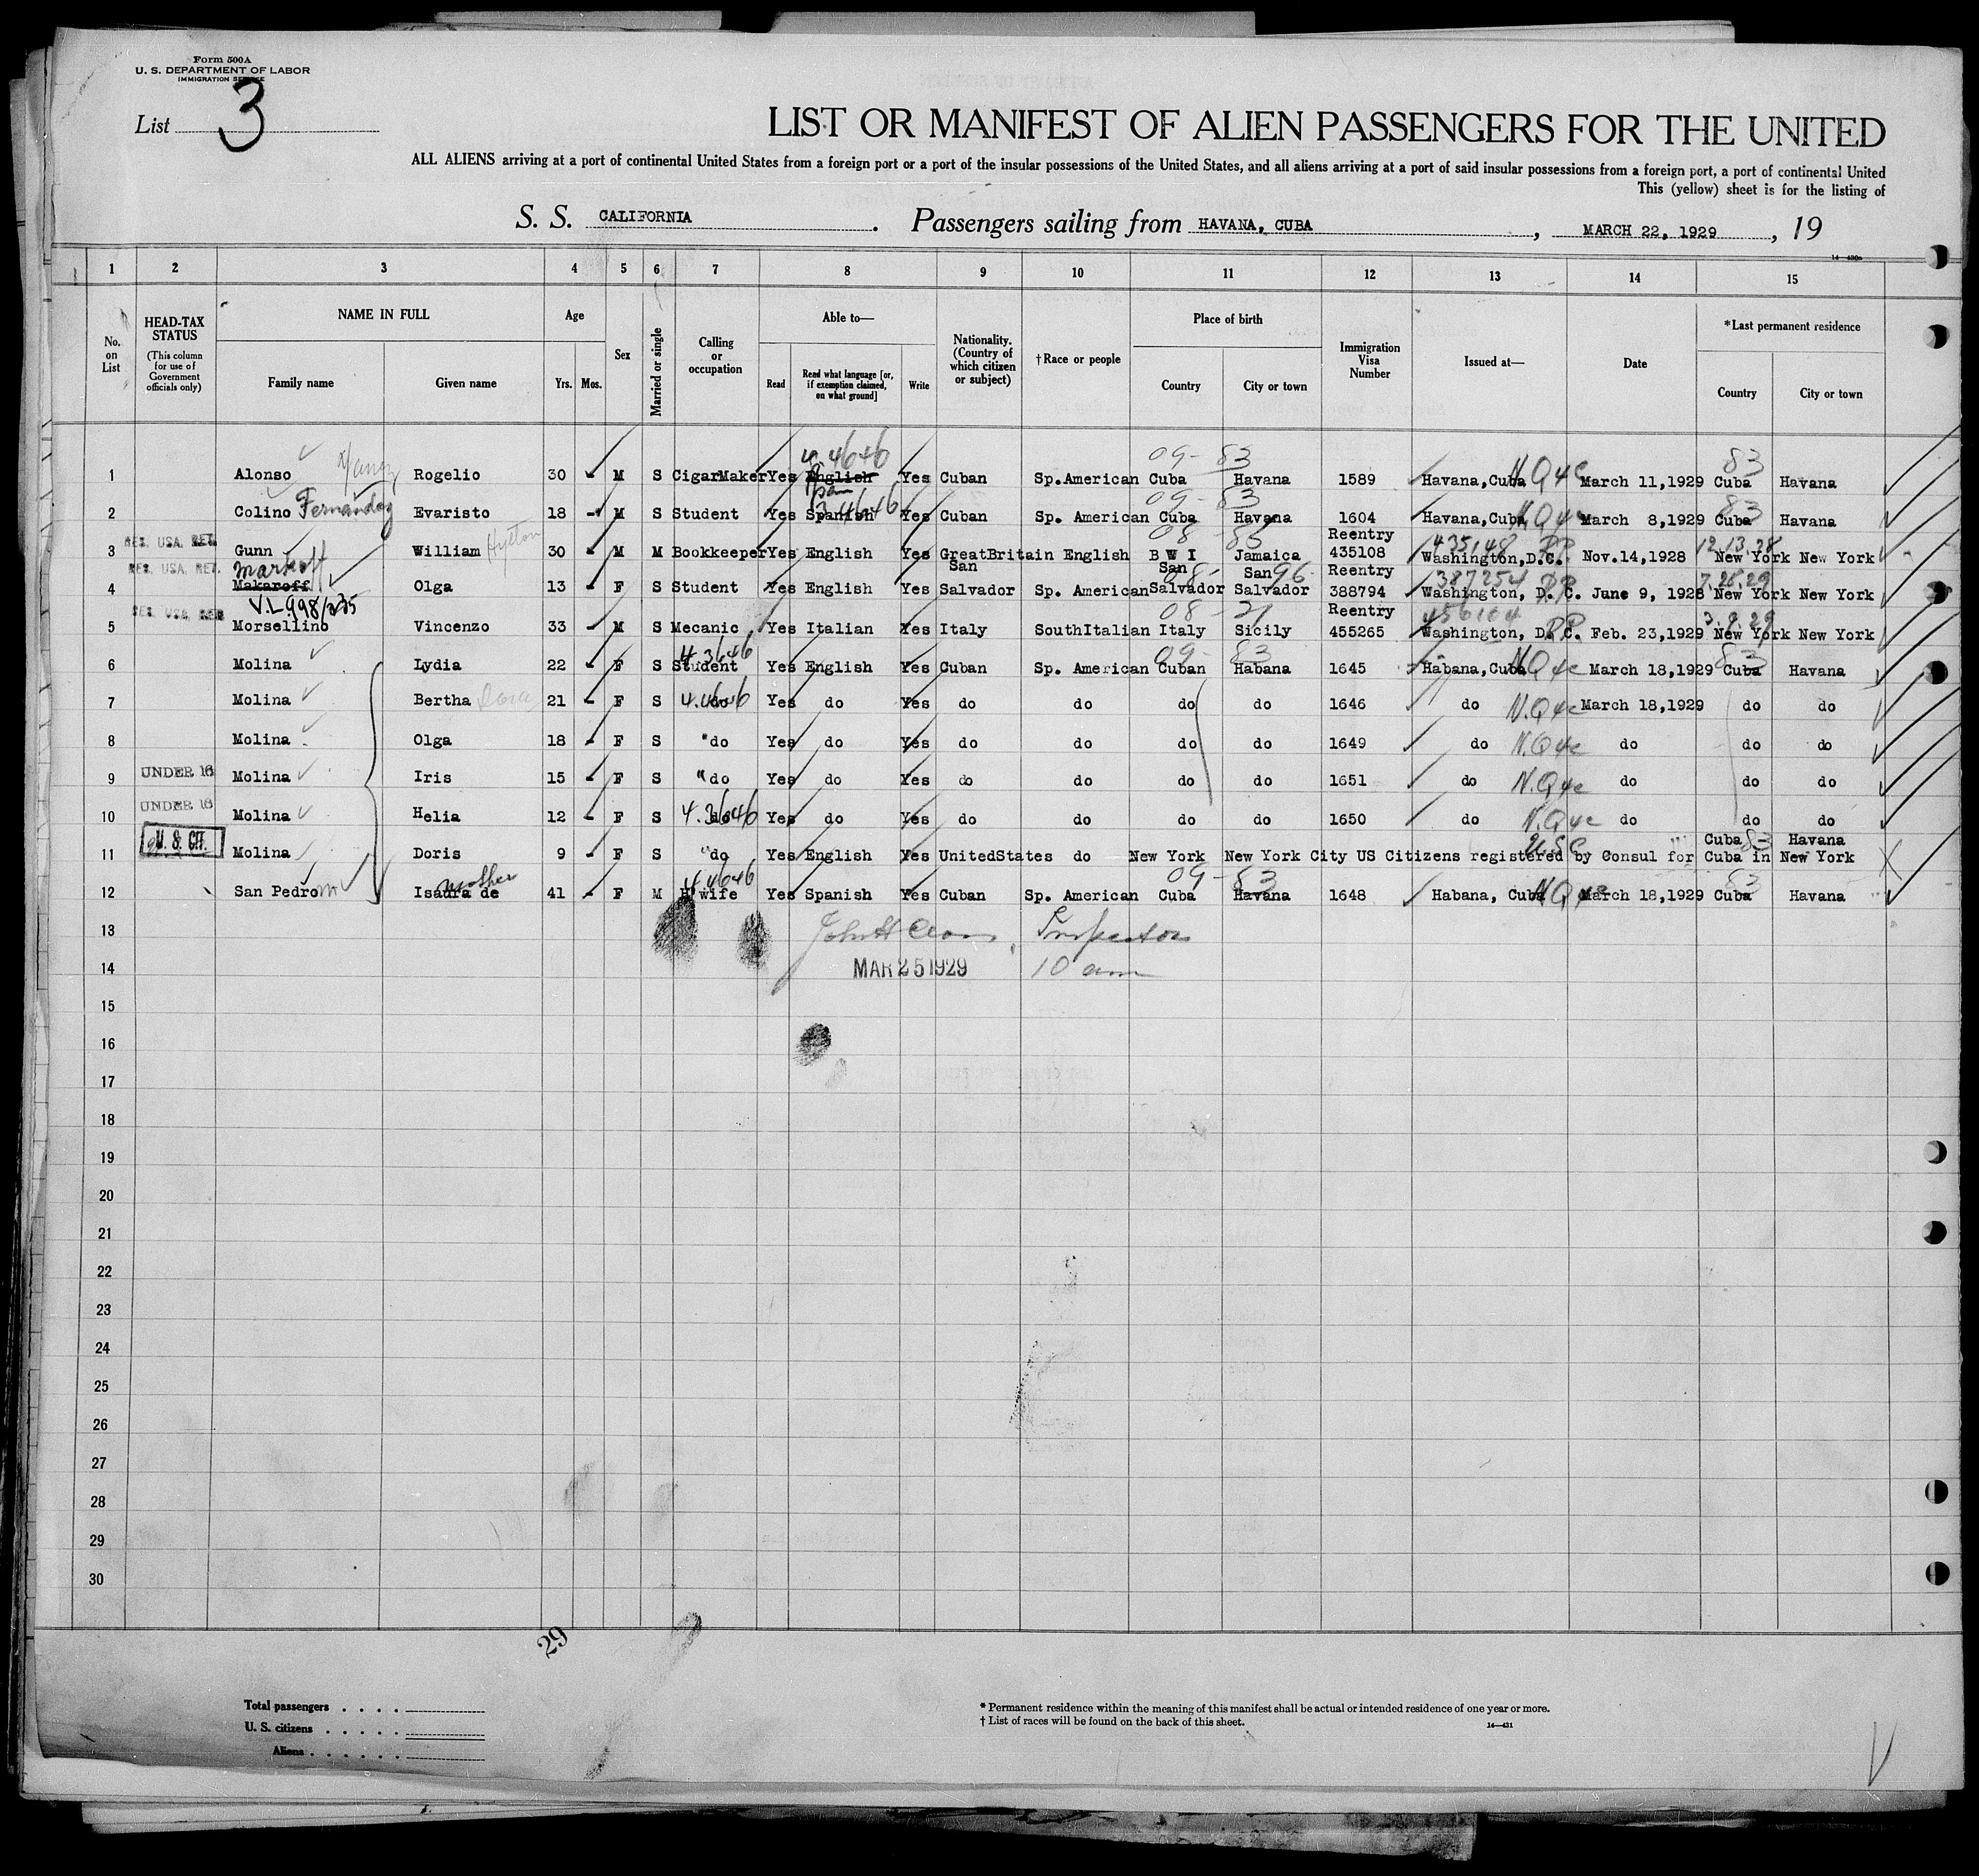 Form 500A
U. S. DEPARTMENT OF LABOR
IMMIGRATION SERVICE
List 3
LIST OR MANIFEST OF ALIEN PASSENGERS FOR THE UNITED
ALL ALIENS arriving at a port of continental United States from a foreign port or a port of the insular possessions of the United States, and all aliens arriving at a port of said insular possessions from a foreign port, a port of continental United
This (yellow) sheet is for the listing of
S. S. CALIFORNIA. Passengers sailing from HAVANA, CUBA, MARCH 22, 1929, 19
14—430a
1 2 3 4 5 6 7 8 9 10 11 12 13 14 15
No. on List
HEAD-TAX STATUS
(This column for use of Government officials only)
NAME IN FULL
Family name Given name
Age
Yrs. Mos.
Sex
Married or single
Calling or occupation
Able to—
Read Read what language [or, if exemption claimed, on what ground] Write
Nationality. (Country of which citizen or subject)
†Race or people
Place of birth
Country City or town
Immigration Visa Number
Issued at—
Date
*Last permanent residence
Country City or town
4.4646 09-83 83
1 Alonso Rogelio 30 - M S CigarMaker Yes English Yes Cuban Sp.American Cuba Havana 1589 Havana,Cuba NQ4c March 11,1929 Cuba Havana
Span 09-83 83
2 Colino Fernandez Evaristo 18 - M S Student Yes Spanish Yes Cuban Sp. American Cuba Havana 1604 Havana,Cuba NQ4c March 8,1929 Cuba Havana
RES. USA. RET. 08-85 Reentry 435148 PP 12.13.28
3 Gunn William Hylton 30 - M M Bookkeeper Yes English Yes GreatBritain English B W I Jamaica 435108 Washington,D.C. Nov.14,1928 New York New York
RES. USA. RET. San San San 96 Reentry 387254 PP
4 Makaroff Olga 13 - F S Student Yes English Yes Salvador Sp. American Salvador Salvador 388794 Washington, D. C. June 9, 1928 New York New York
V.L. 998/235 08-21 Reentry 456164 PP 3.9.29
5 Morsellino Vincenzo 33 - M S Mecanic Yes Italian Yes Italy SouthItalian Italy Sicily 455265 Washington, D. C. Feb. 23,1929 New York New York
4.3646 09-83 83
6 Molina Lydia 22 - F S Student Yes English Yes Cuban Sp. American Cuban Habana 1645 Habana,Cuba NQ4c March 18,1929 Cuba Havana
7 Molina Bertha 21 - F S 4.4646 do Yes do Yes do do do do 1646 do N.Q4c March 18,1929 do do
8 Molina Olga 18 - F S " do Yes do Yes do do do do 1649 do N.Q4c do do do
UNDER 16
9 Molina Iris 15 - F S " do Yes do Yes do do do do 1651 do N.Q4c do do do
UNDER 16
10 Molina Helia 12 - F S 4.3646 do Yes do Yes do do do do 1650 do N.Q4c do do do
U. S. CIT. USC Cuba 83 Havana
11 Molina Doris 9 - F S " do Yes English Yes UnitedStates do New York New York City US Citizens registered by Consul for Cuba in New York
mother 4.4646 09-83 83
12 San Pedro Isaura de 41 - F M H'wife Yes Spanish Yes Cuban Sp. American Cuba Havana 1648 Habana, Cuba NQ4c March 18,1929 Cuba Havana
13 Inspector
14 MAR 25 1929 10 am
15
16
17
18
19
20
21
22
23
24
25
26
27
28
29
30
29
Total passengers
U. S. citizens
Aliens
* Permanent residence within the meaning of this manifest shall be actual or intended residence of one year or more.
† List of races will be found on the back of this sheet.
14—431